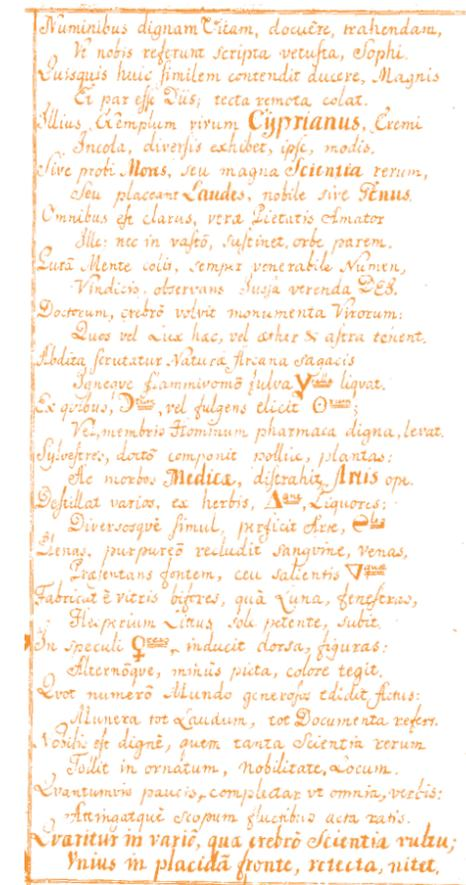 Numinibus dignam Vitam, docuêre, trahendam,
Vt nobis referunt scripta vetusta, Sophi.
Quisquis huic similem contendit ducere, Magnis
Et par esse Diis; tecta remota colat.
Illius Exemplum virum Cyprianus, Eremi
Incola, diversis exhibet, ipse, modis.
Sive probi Mores, seu magna Scientia rerum,
Seu placeant Laudes, nobile sive Genus.
Omnibus est clarus, veræ Pietatis Amator
Ille: nec in vastō, sustinet, orbe parem.
Purâ Mente colit, semper venerabile Numen,
Vindicis, observans Jussa verenda DEI.
Doctorum, crebrō volvit monumenta Virorum:
Quos vel Lux hæc, vel æther & astra tenent.
Abdita scrutatur Naturæ Arcana sagacis
Igneave flammivomō fulva liquat.
Ex quibus, vel fulgens elicit
Vel, membris Hominum pharmaca digna, levat.
Sylvestres, doctō componit pollice, plantas:
Ac morbos Medicæ, distrahit, Artis ope.
Destillat varios, ex herbis, Liquores:
Diversosqve simul, perficit Arte,
Plenas, purpureō recludit sangvine, venas,
Præsentans fontem, ceu salientis
Fabricat è vitris bistres, quâ Luna, fenestras,
Hesperium Litus sole petente, subit.
In speculi inducit dorsa, figuras:
Alternōqve, minùs picta, colore tegit.
Qvot numerō Mundo generosos edidit Actus:
Munera tot Laudum, tot Documenta refert.
Nobilis est dignè, quem tanta Scientia rerum
Tollit in ornatum, Nobilitate, Locum.
Qvantumvis paucis, complectar vt omnia, verbis:
Attingatqvè scopum fluctibus acta ratis.
Qværitur in variō, qua crebrō Scientia vultu;
Vnius in placidâ fronte, retecta, nitet.